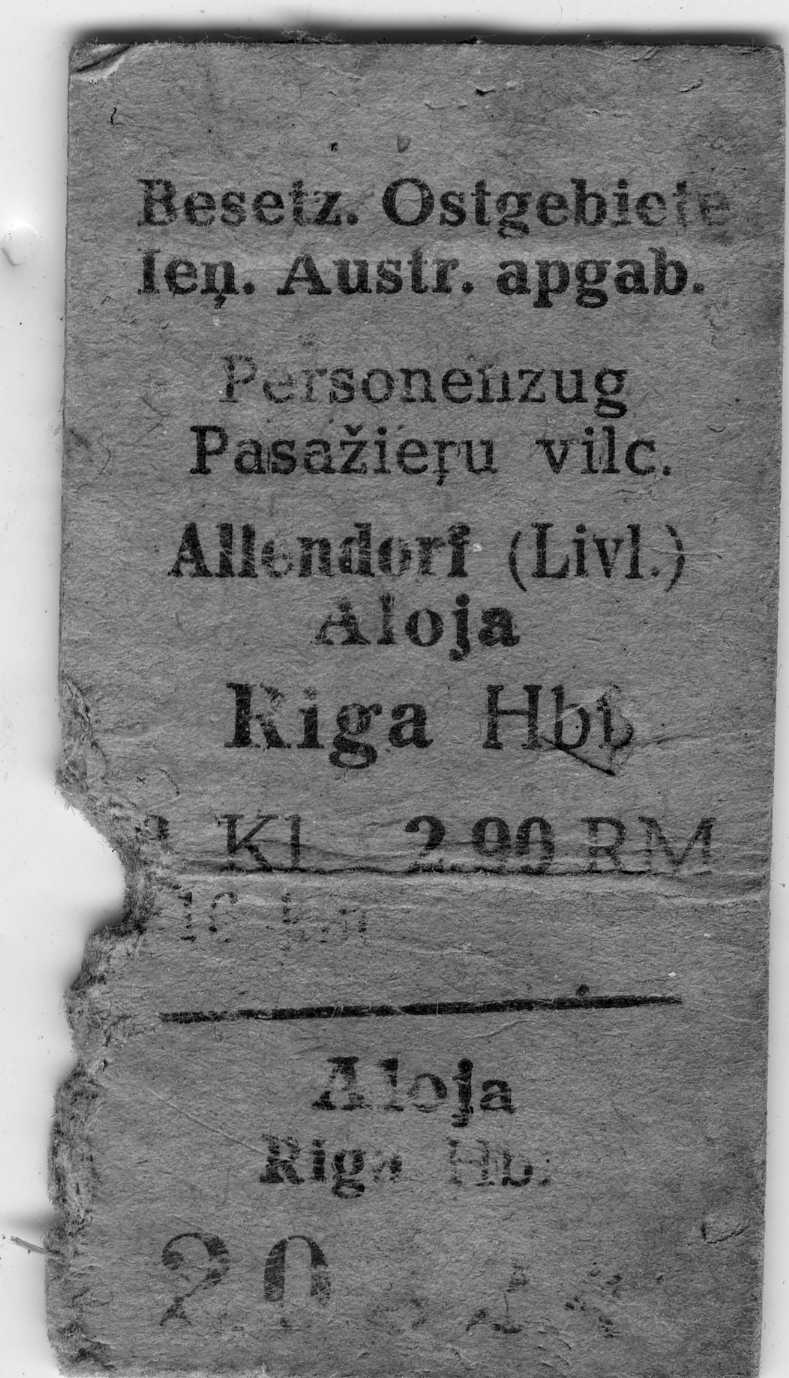 Besetz. Ostgebiete
Ieņ. Austr. apgab.
Personenzug
Pasažieŗu vilc.
Allendorf (Livl.)
Aloja
Riga Hbf
3. Kl. 2.90 RM
Aloja
Riga Hbf
20